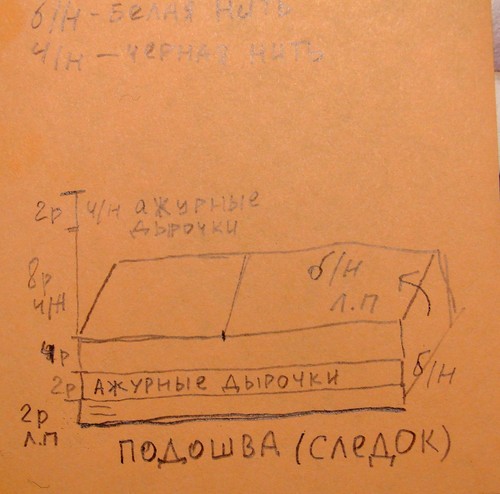 б/н - БЕЛАЯ НИТЬ
Ч/Н - ЧЕРНАЯ НИТЬ
2р Ч/Н АЖУРНЫЕ
ДЫРОЧКИ
8р
Ч/Ж
б/Н
Л.П
4р
2р АЖУРНЫЕ ДЫРОЧКИ
б/Н
2р
Л.П
ПОДОШВА (СЛЕДОК)